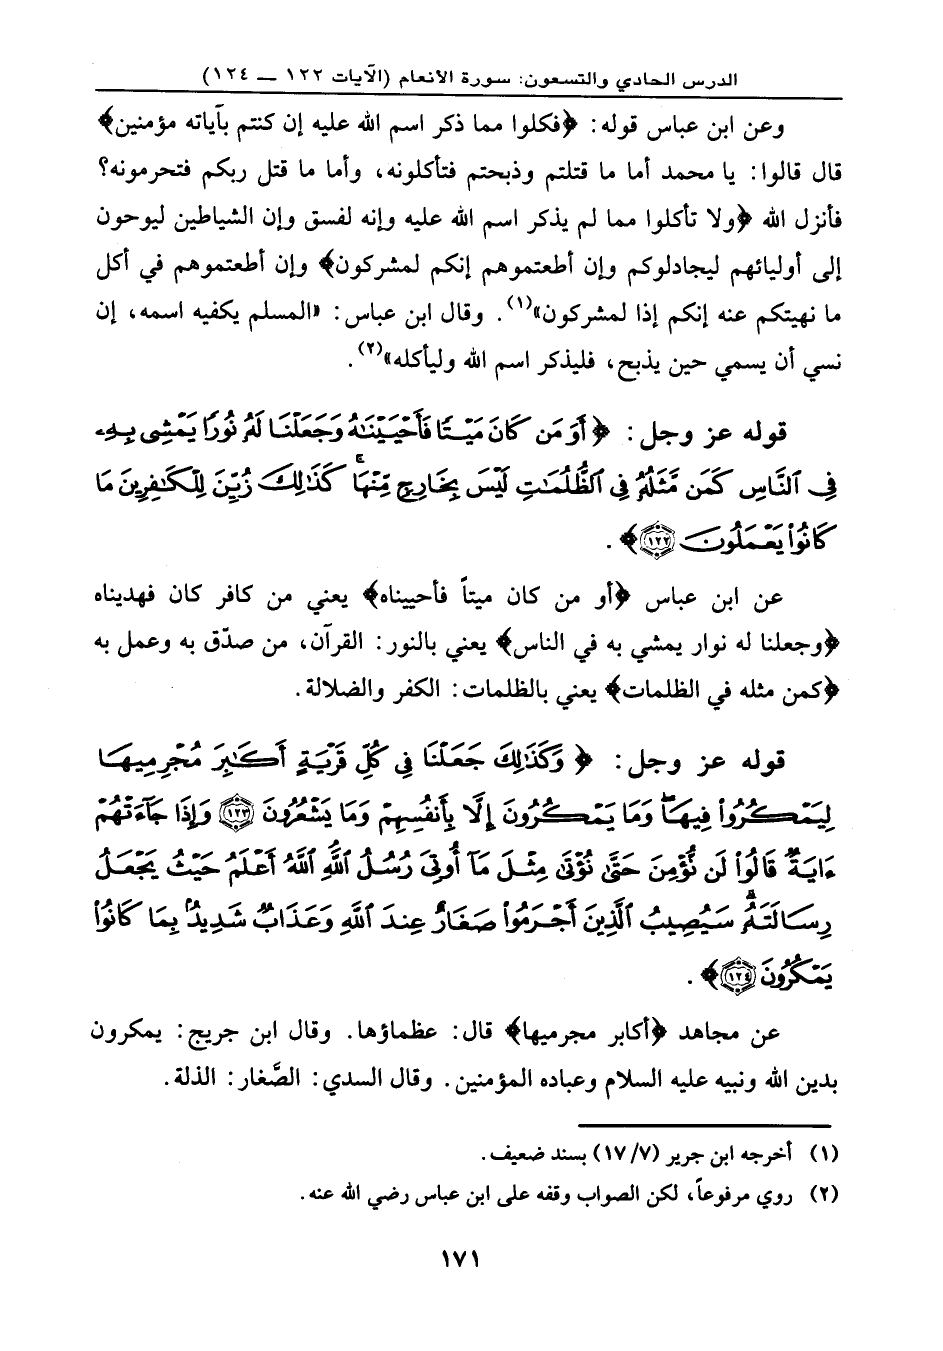 الدرس الحادي والتسعون: سورة الأنعام (الآيات ١٢٢ ــ ١٢٤)
وعن ابن عباس قوله: ﴿فكلوا مما ذكر اسم الله عليه إن كنتم بآياته مؤمنين﴾
قال قالوا: يا محمد أما ما قتلتم وذبحتم فتأكلونه، وأما ما قتل ربكم فتحرمونه؟
فأنزل الله ﴿ولا تأكلوا مما لم يذكر اسم الله عليه وإنه لفسق وإن الشياطين ليوحون
إلى أوليائهم ليجادلوكم وإن أطعتموهم إنكم لمشركون﴾ وإن أطعتموهم في أكل
ما نهيتكم عنه إنكم إذا لمشركون»(١). وقال ابن عباس: «المسلم يكفيه اسمه، إن
نسي أن يسمي حين يذبح، فليذكر اسم الله وليأكله»(٢).
قوله عز وجل: ﴿أَوَمَن كَانَ مَيْتًا فَأَحْيَيْنَٰهُ وَجَعَلْنَا لَهُۥ نُورًا يَمْشِى بِهِۦ
فِى ٱلنَّاسِ كَمَن مَّثَلُهُۥ فِى ٱلظُّلُمَٰتِ لَيْسَ بِخَارِجٍ مِّنْهَا ۚ كَذَٰلِكَ زُيِّنَ لِلْكَٰفِرِينَ مَا
كَانُوا۟ يَعْمَلُونَ ١٢٢﴾.
عن ابن عباس ﴿أو من كان ميتاً فأحييناه﴾ يعني من كافر كان فهديناه
﴿وجعلنا له نوار يمشي به في الناس﴾ يعني بالنور: القرآن، من صدّق به وعمل به
﴿كمن مثله في الظلمات﴾ يعني بالظلمات: الكفر والضلالة.
قوله عز وجل: ﴿وَكَذَٰلِكَ جَعَلْنَا فِى كُلِّ قَرْيَةٍ أَكَٰبِرَ مُجْرِمِيهَا
لِيَمْكُرُوا۟ فِيهَا ۖ وَمَا يَمْكُرُونَ إِلَّا بِأَنفُسِهِمْ وَمَا يَشْعُرُونَ ١٢٣ وَإِذَا جَآءَتْهُمْ
ءَايَةٌ قَالُوا۟ لَن نُّؤْمِنَ حَتَّىٰ نُؤْتَىٰ مِثْلَ مَآ أُوتِىَ رُسُلُ ٱللَّهِ ۘ ٱللَّهُ أَعْلَمُ حَيْثُ يَجْعَلُ
رِسَالَتَهُۥ ۗ سَيُصِيبُ ٱلَّذِينَ أَجْرَمُوا۟ صَغَارٌ عِندَ ٱللَّهِ وَعَذَابٌ شَدِيدٌۢ بِمَا كَانُوا۟
يَمْكُرُونَ ١٢٤﴾.
عن مجاهد ﴿أكابر مجرميها﴾ قال: عظماؤها. وقال ابن جريج: يمكرون
بدين الله ونبيه عليه السلام وعباده المؤمنين. وقال السدي: الصَّغار: الذلة.
(١) أخرجه ابن جرير (١٧/٧) بسند ضعيف.
(٢) روي مرفوعاً، لكن الصواب وقفه على ابن عباس رضي الله عنه.
١٧١